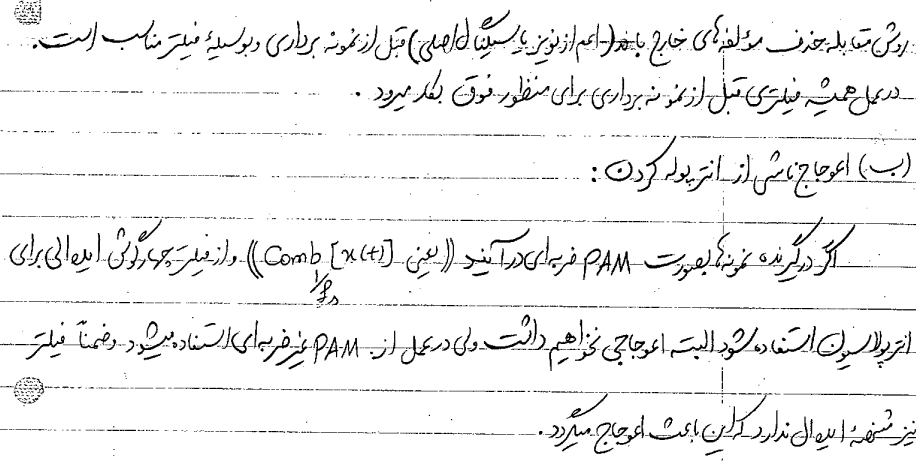 روش مقابله حذف مؤلفه‌های خارج باند (اعم از نویز یا سیگنال اصلی) قبل از نمونه برداری و بوسیلهٔ فیلتر مناسب است.
در عمل همیشه فیلتری قبل از نمونه برداری برای منظور فوق بکار میرود.
(ب) اعوجاج ناشی از انترپوله کردن:
اگر در گیرنده نمونه‌ها بصورت PAM ضربه‌ای در آیند ((یعنی Comb [x(t)])) و از فیلتر چهارگوش ایده‌الی برای
1/fs
انترپولاسیون استفاده شود البته اعوجاجی نخواهیم داشت ولی در عمل از PAM غیر ضربه‌ای استفاده میشود و ضمناً فیلتر
نیز مشخصهٔ ایده‌ال ندارد که این باعث اعوجاج میگردد.